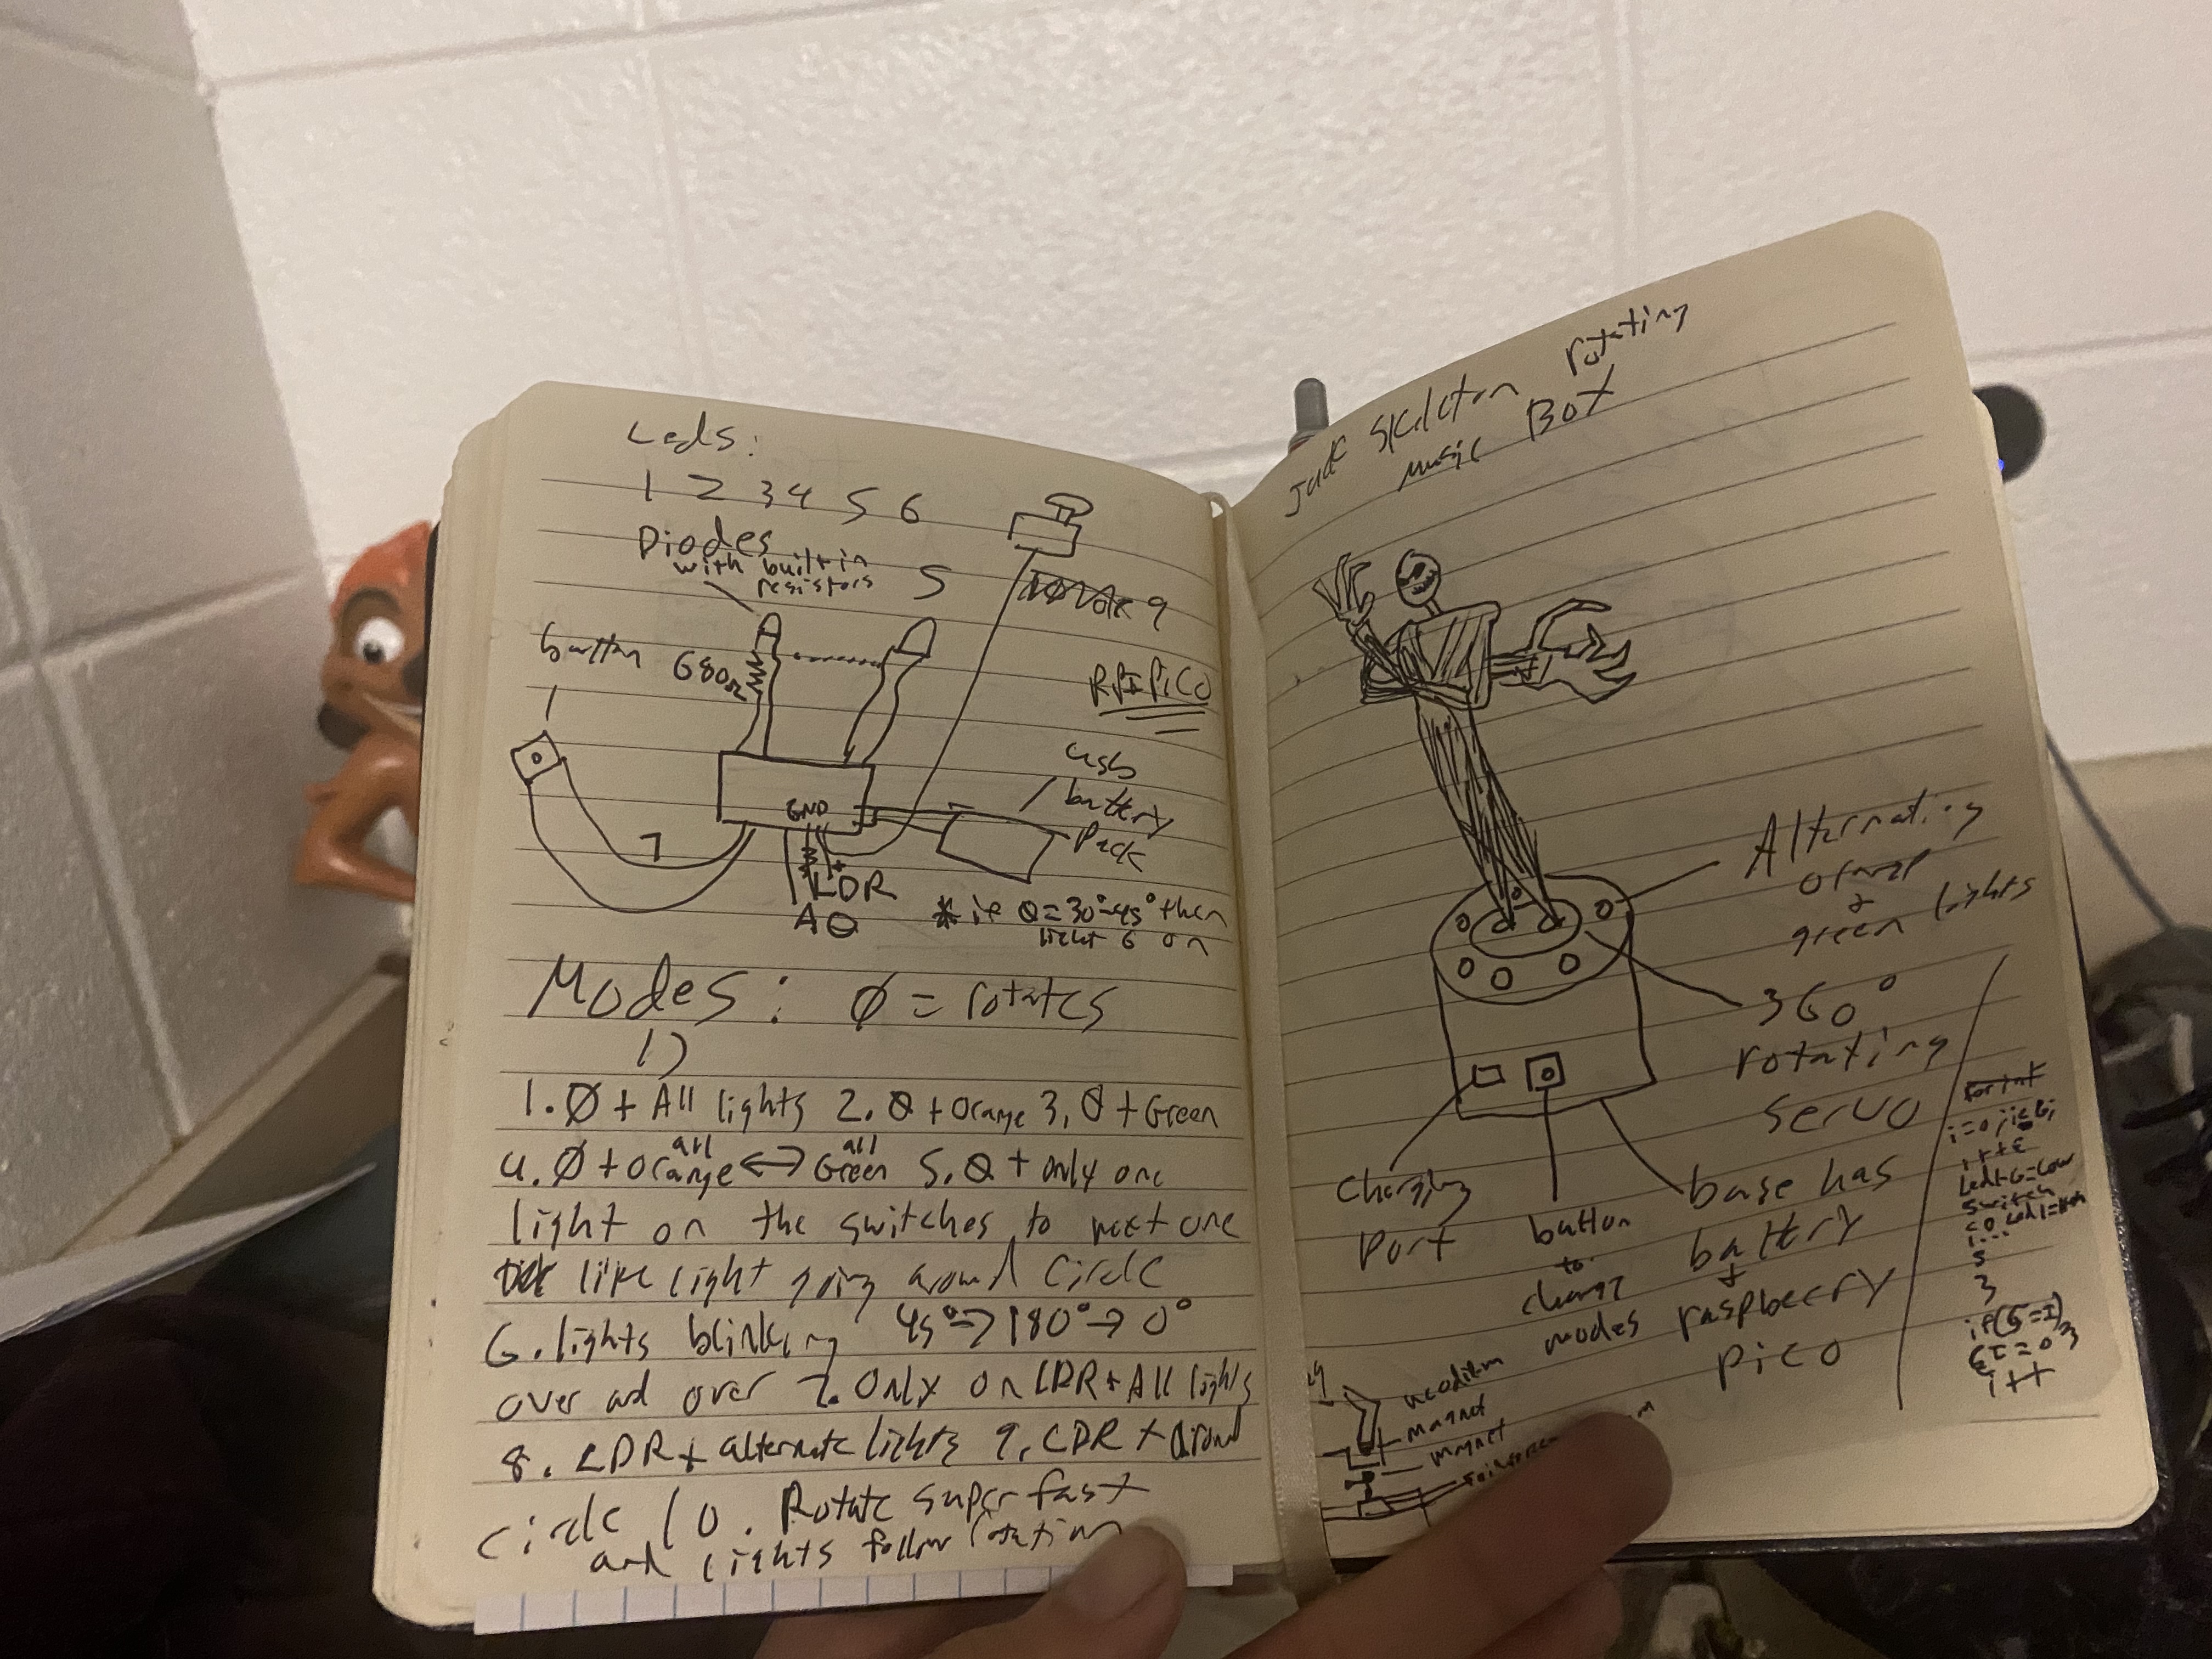 Leds:
1 2 3 4 5 6
Diodes
with built in
resistors
5
9
button
680Ω
RPI PiCO
1
usb
battery
Pack
GND
7
+
LDR
A0
* if θ=30°-45° then
light 6 on
Modes: Ø = rotates
1)
1. Ø + All lights 2. Ø + Orange 3. Ø + Green
4. Ø + all Orange ↔ all Green 5. Ø + only one
light on the switches to next one
like light going around circle
6. lights blinking 45° → 180° → 0°
over and over 7. Only on LDR + All lights
8. LDR + alternate lights 9. LDR + around
circle 10. Rotate super fast
and lights follow rotation
Jack Skeleton rotating
music BOX
Alternating
orange
&
green lights
360°
rotating
servo
Charging
Port
button
to
change
modes
base has
battery
+
raspberry
pico
i++
Led1-6=Low
switch
3
3
i++
neodium
magnet
magnet